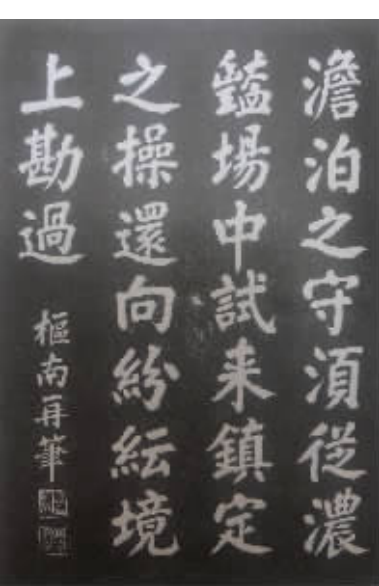 澹泊之守須従濃
豔場中試来鎮定
之操還向紛紜境
上勘過
樞南再筆